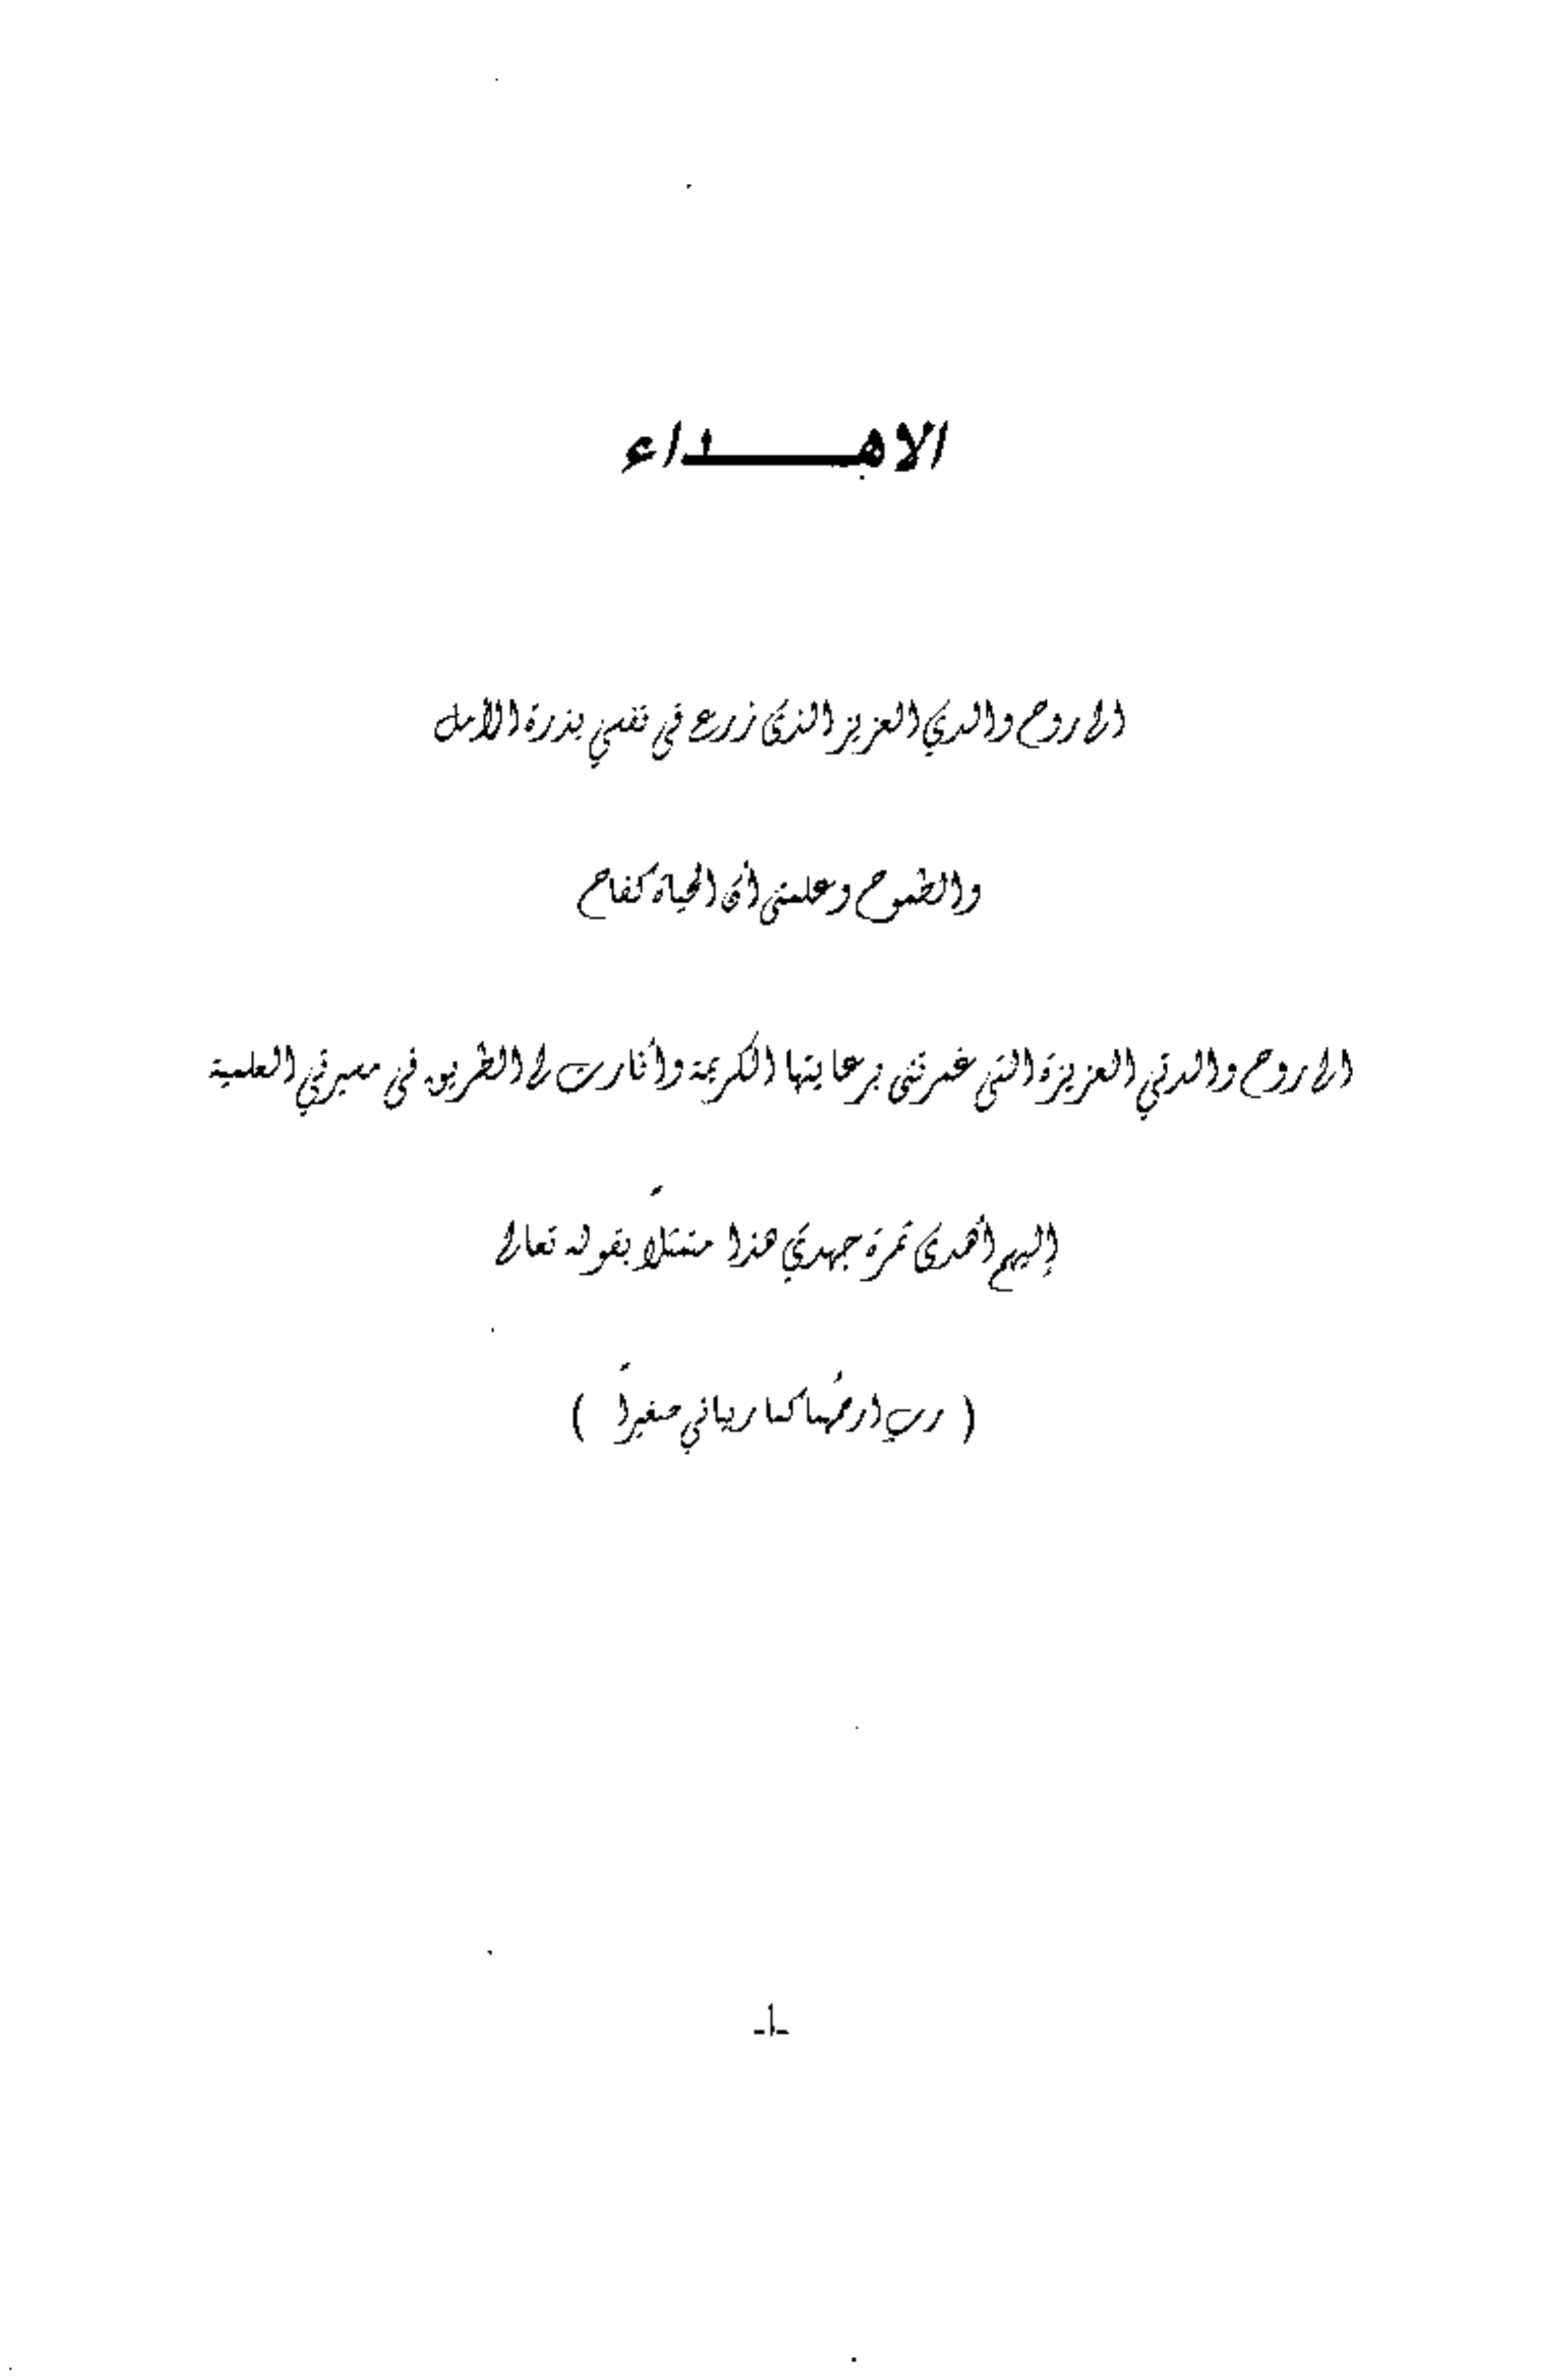 الاهــــــداء
الى روح والدي العزيز الذي زرع في نفسي بذرة الأمل
والطموح وعلمني أن الحياة كفاح
الى روح والدتي العزيزة التي غمرتني برعايتها الكريمة وأنارت لي الطريق في مسيرتي العلمية
إليهم أهدي ثمرة جهدي هذا متمثلاً بقوله تعالى
( رب ارحمهُما كما ربياني صغيراً )
-أ-